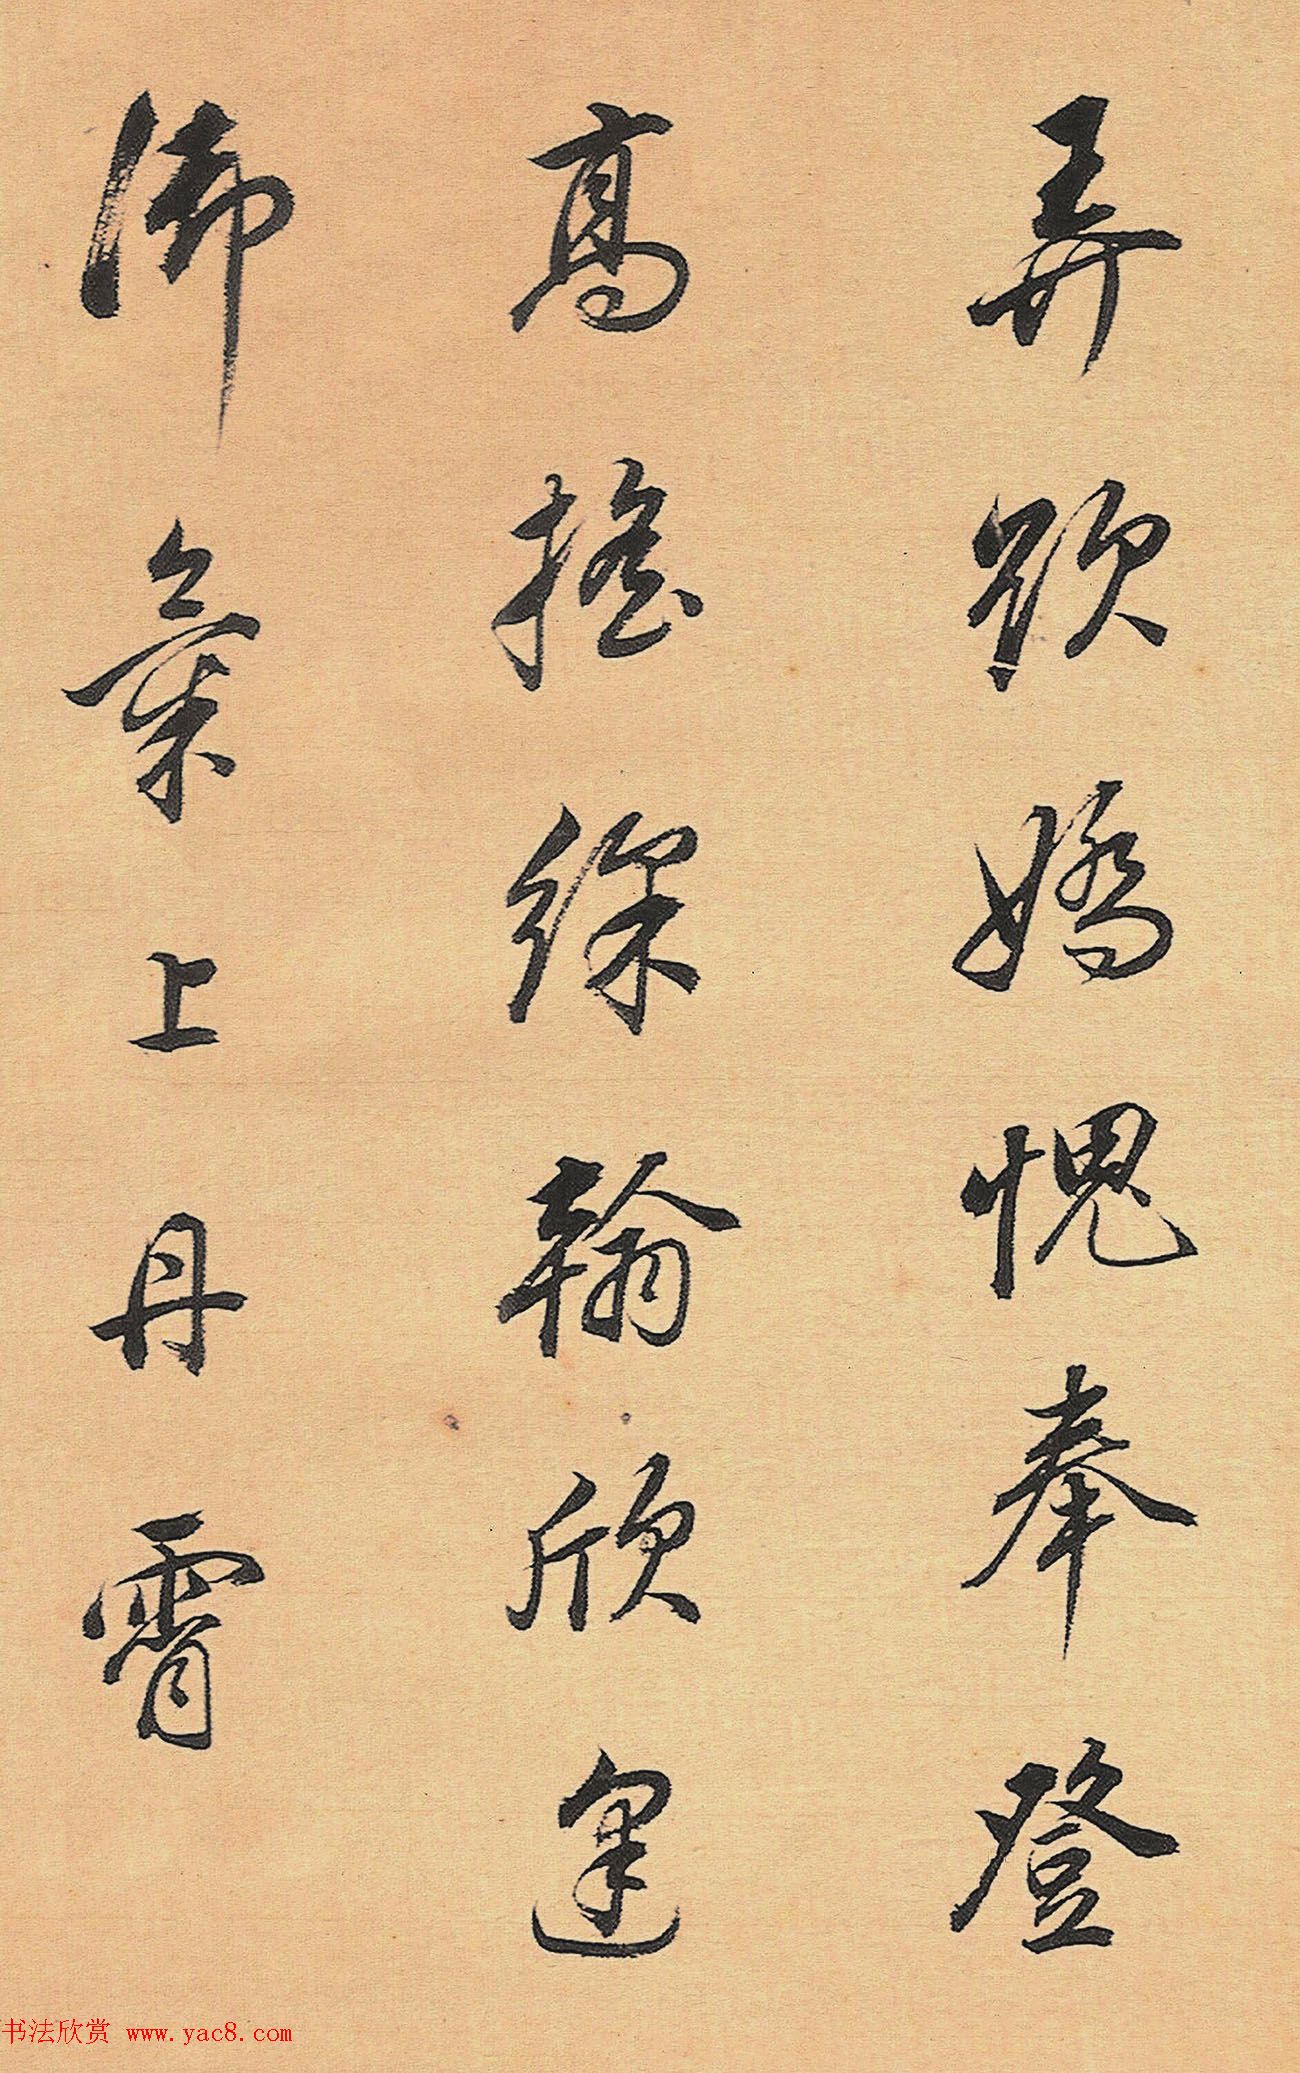 弄嬌愧奉登
高搖綵翰欣逢
御氣上丹霄
书法欣赏 www.yac8.com